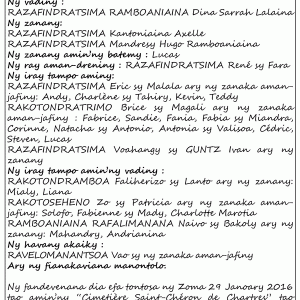 Ny vadiny :
RAZAFINDRATSIMA RAMBOANIAINA Dina Sarrah Lalaina
Ny zanany:
RAZAFINDRATSIMA Kantoniaina Axelle
RAZAFINDRATSIMA Mandresy Hugo Ramboaniaina
Ny zanany amin'ny batemy : Lucas
Ny ray aman-dreniny : RAZAFINDRATSIMA René sy Fara
Ny iray tampo aminy:
RAZAFINDRATSIMA Eric sy Malala ary ny zanaka aman-
jafiny: Andy, Charlène sy Tahiry, Kevin, Teddy
RAKOTONDRATRIMO Brice sy Magali ary ny zanaka
aman-jafiny : Fabrice, Sandie, Fania, Fabia sy Miandra,
Corinne, Natacha sy Antonio, Antonia sy Valisoa, Cédric,
Steven, Lucas
RAZAFINDRATSIMA Voahangy sy GUNTZ Ivan ary ny
zanany
Ny iray tampo amin'ny vadiny :
RAKOTONDRAMBOA Faliherizo sy Lanto ary ny zanany:
Mialy, Liana
RAKOTOSEHENO Zo sy Patricia ary ny zanaka aman-
jafiny: Solofo, Fabienne sy Mady, Charlotte Marotia
RAMBOANIAINA RAFALIMANANA Naivo sy Bakoly ary ny
zanany: Mahandry, Andrianina
Ny havany akaiky :
RAVELOMANANTSOA Vao sy ny zanaka aman-jafiny
Ary ny fianakaviana manontolo.
Ny fandevenana dia efa tontosa ny Zoma 29 Janoary 2016
tao amin'ny "Cimetière Saint-Chéron de Chartres" tao